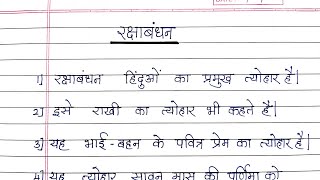 रक्षाबंधन
1) रक्षाबंधन हिंदुओं का प्रमुख त्योहार है।
2) इसे राखी का त्योहार भी कहते है।
3) यह भाई-बहन के पवित्र प्रेम का त्योहार है।
4) यह त्योहार सावन मास की पूर्णिमा को